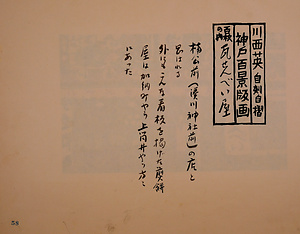 川西英 自刻自摺
神戸百景版画
百景の内
瓦せんべい屋
楠公前(湊川神社前)の店と
思はれる
外にもこんな看板を掲げた煎餅
屋は加納町やら上筒井やら方々
にあった
58